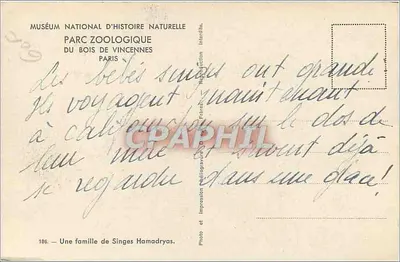 MUSÉUM NATIONAL D'HISTOIRE NATURELLE
PARC ZOOLOGIQUE
DU BOIS DE VINCENNES
PARIS
Les bébés singes ont grandi
Ils voyagent maintenant
à califourchon sur le dos de
leur mère et savent déjà
se regarder dans une glace!
CPARHIL
186. — Une famille de Singes Hamadryas.
Photo et Impression Héliogravure
Interdite.